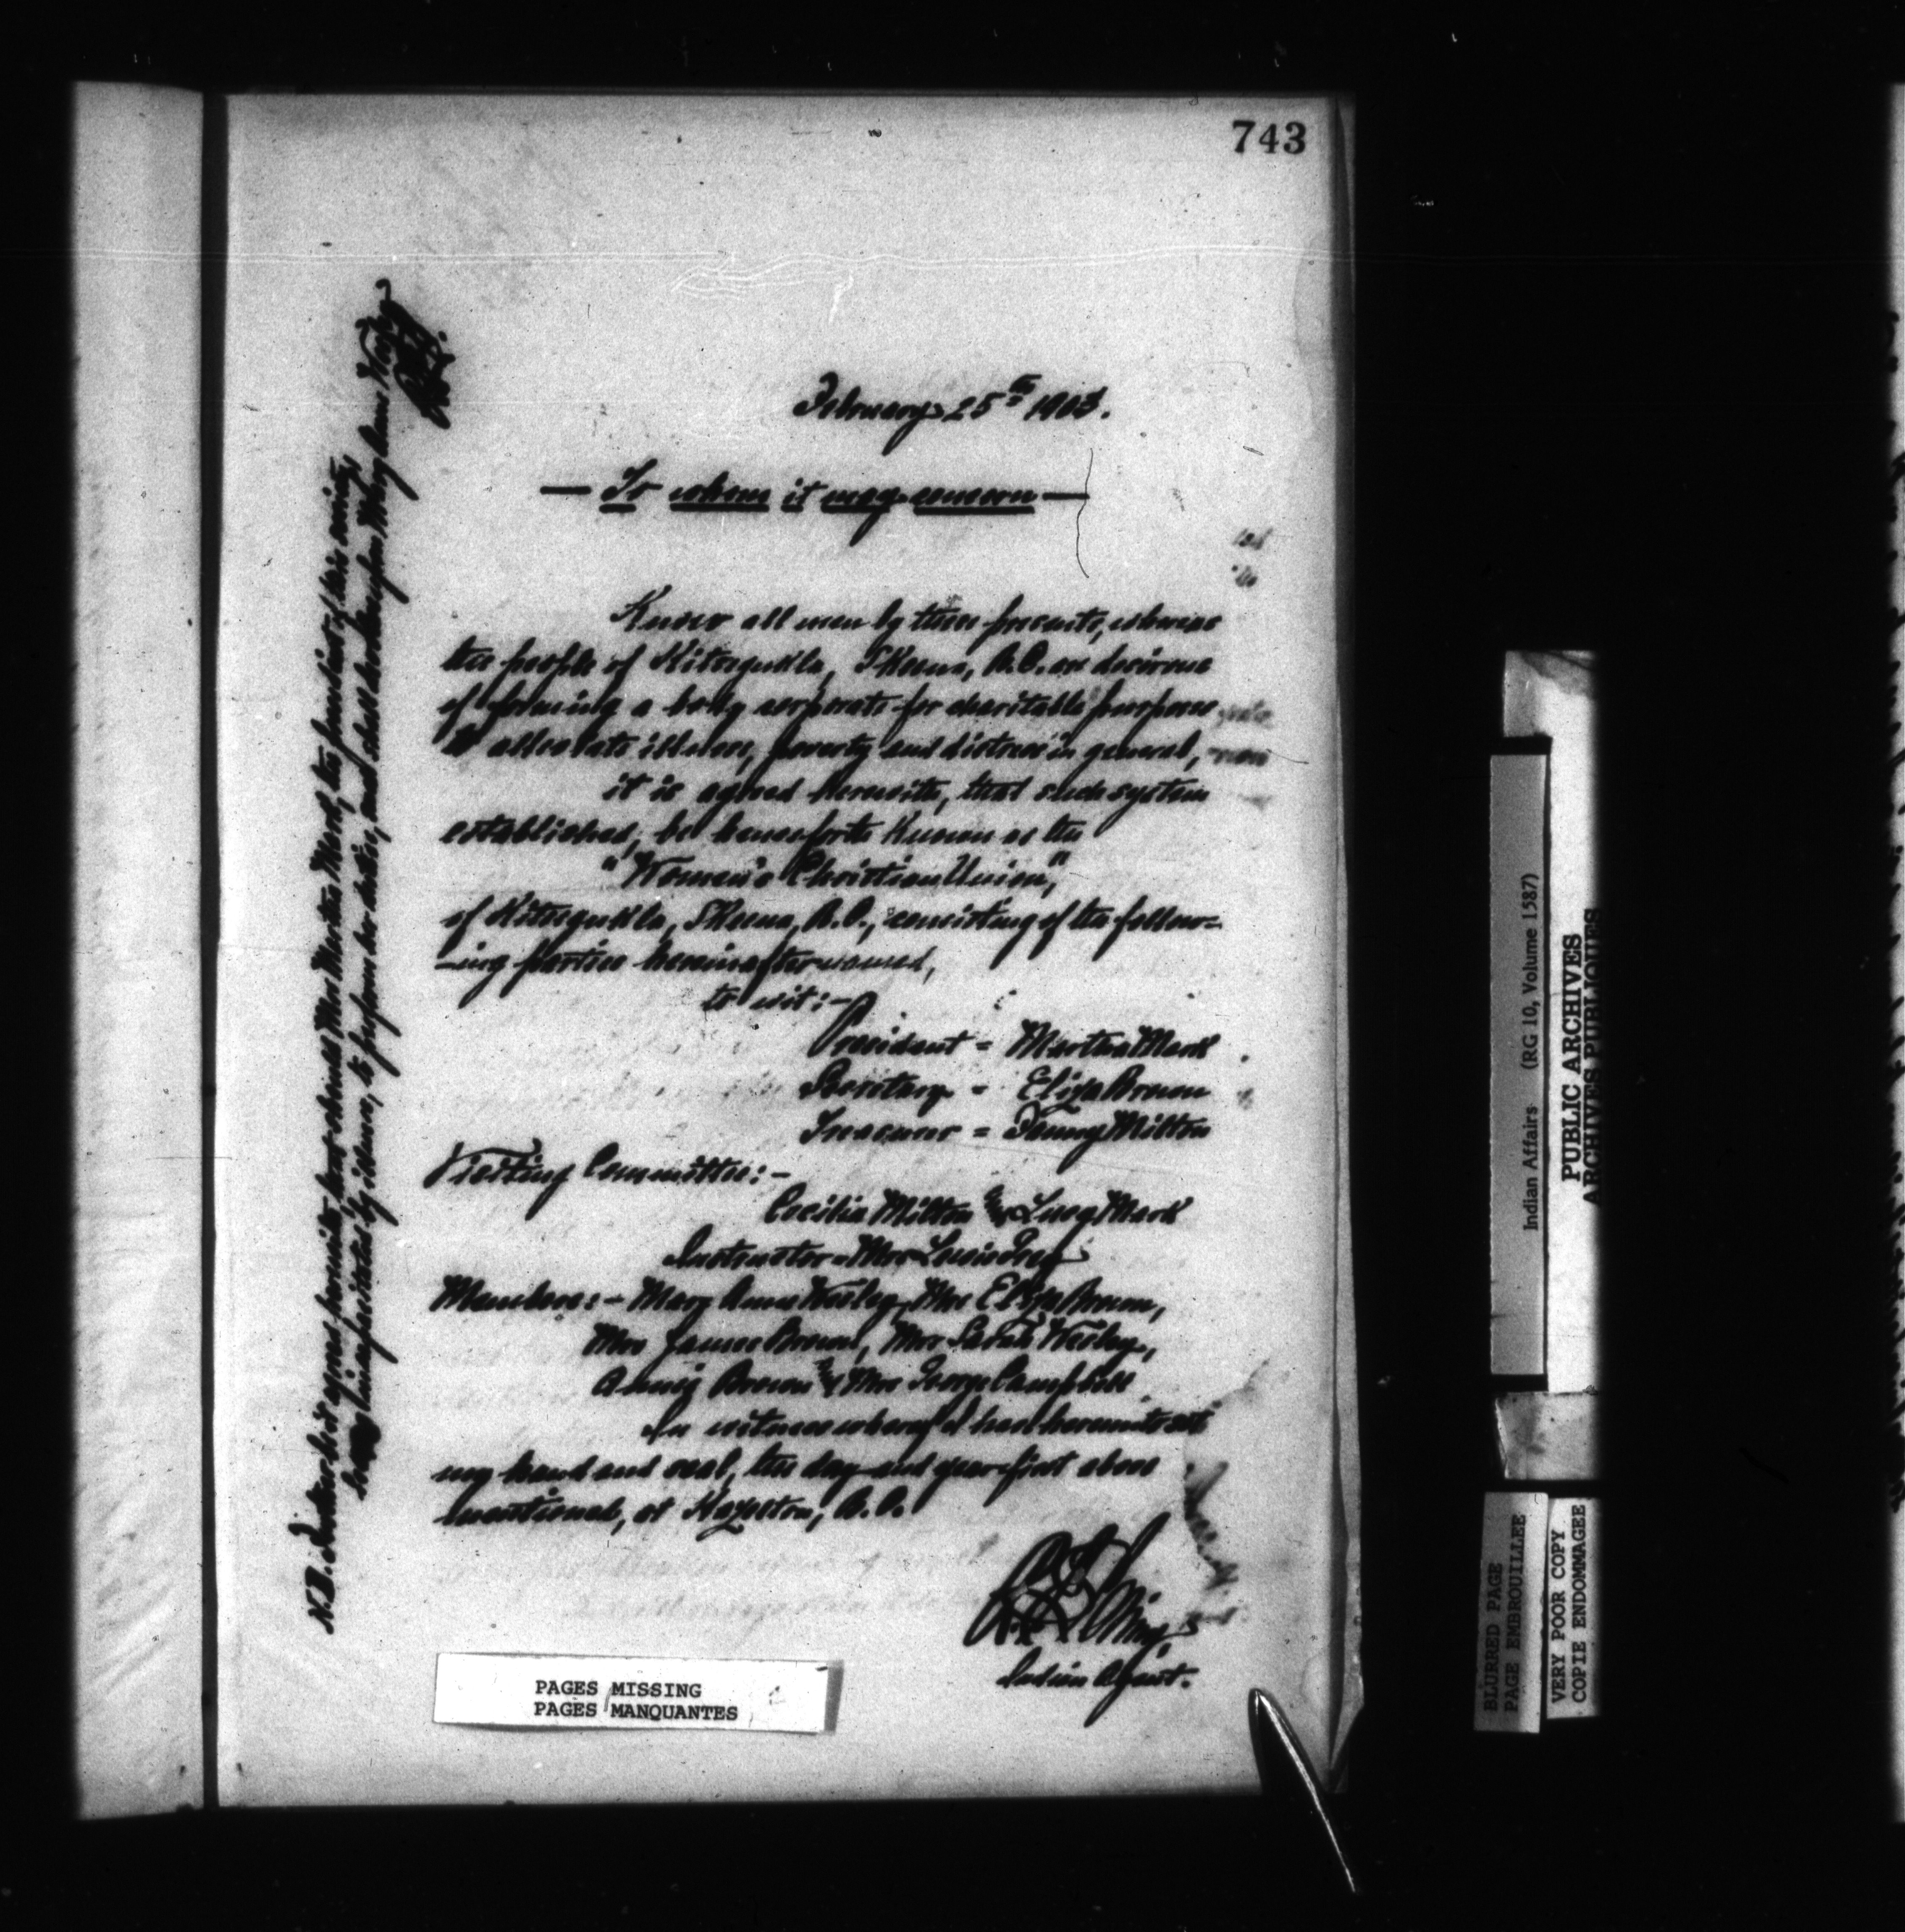 743
February 25th 1903.
— To whom it may concern —
Know all men by these presents, whereas
the people of Kitsegukla, Skeena, B.C. are desirous
of forming a body corporate for charitable purposes
to alleviate illness, poverty and distress in general,
it is agreed herewith, that such system
established, be henceforth known as the
"Women's Christian Union,"
of Kitsegukla, Skeena, B.C., consisting of the follow-
-ing parties hereinafter named,
to wit:-
President - Martha Mark
Secretary - Eliza Brown
Treasurer - Fanny Milton
Visiting Committee:-
Cecilia Milton & Lucy Mark
Instructor - Mrs Lewis Grey
Members:- Mary Anne Wesley, Mrs Eliza Brown,
Mrs James Brown, Mrs Sarah Wesley,
Annie Brown & Mrs George Campbell
In witness whereof I have hereunto set
my hand and seal, the day and year first above
mentioned, at Hazelton, B.C.
R. E. Loring
Indian Agent.
N.B. Further be it agreed herewith, that should Mrs Martha Mark, the president of this union,
being incapacitated by illness, to perform her duties, and shall hereby Mary Anne Wesley
PAGES MISSING
PAGES MANQUANTES
Indian Affairs (RG 10, Volume 1587)
PUBLIC ARCHIVES
ARCHIVES PUBLIQUES
BLURRED PAGE
PAGE EMBROUILLEE
VERY POOR COPY
COPIE ENDOMMAGEE